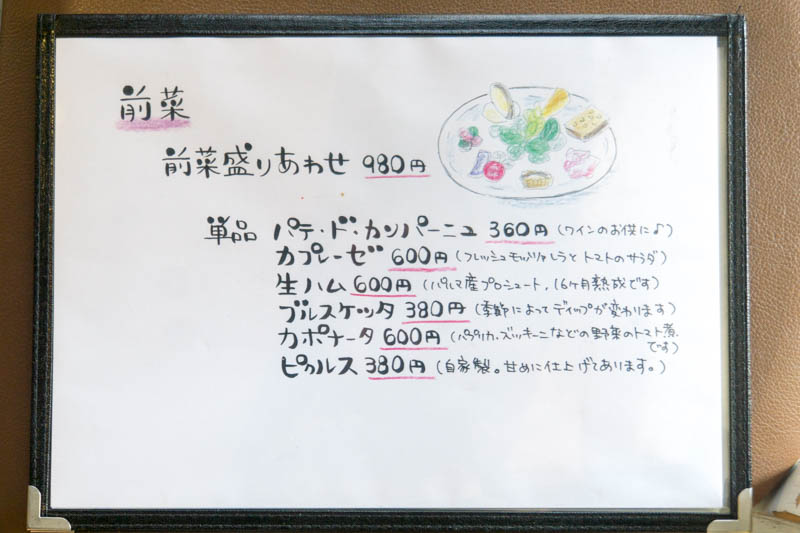 前菜
前菜盛りあわせ 980円
単品 パテ・ド・カンパーニュ 360円 (ワインのお供に♪)
カプレーゼ 600円 (フレッシュモッツァレラとトマトのサラダ)
生ハム 600円 (パルマ産プロシュート, 16ヶ月熟成です)
ブルスケッタ 380円 (季節によってディップが変わります)
カポナータ 600円 (パプリカ、ズッキーニなどの野菜のトマト煮
です)
ピクルス 380円 (自家製。甘めに仕上げてあります。)